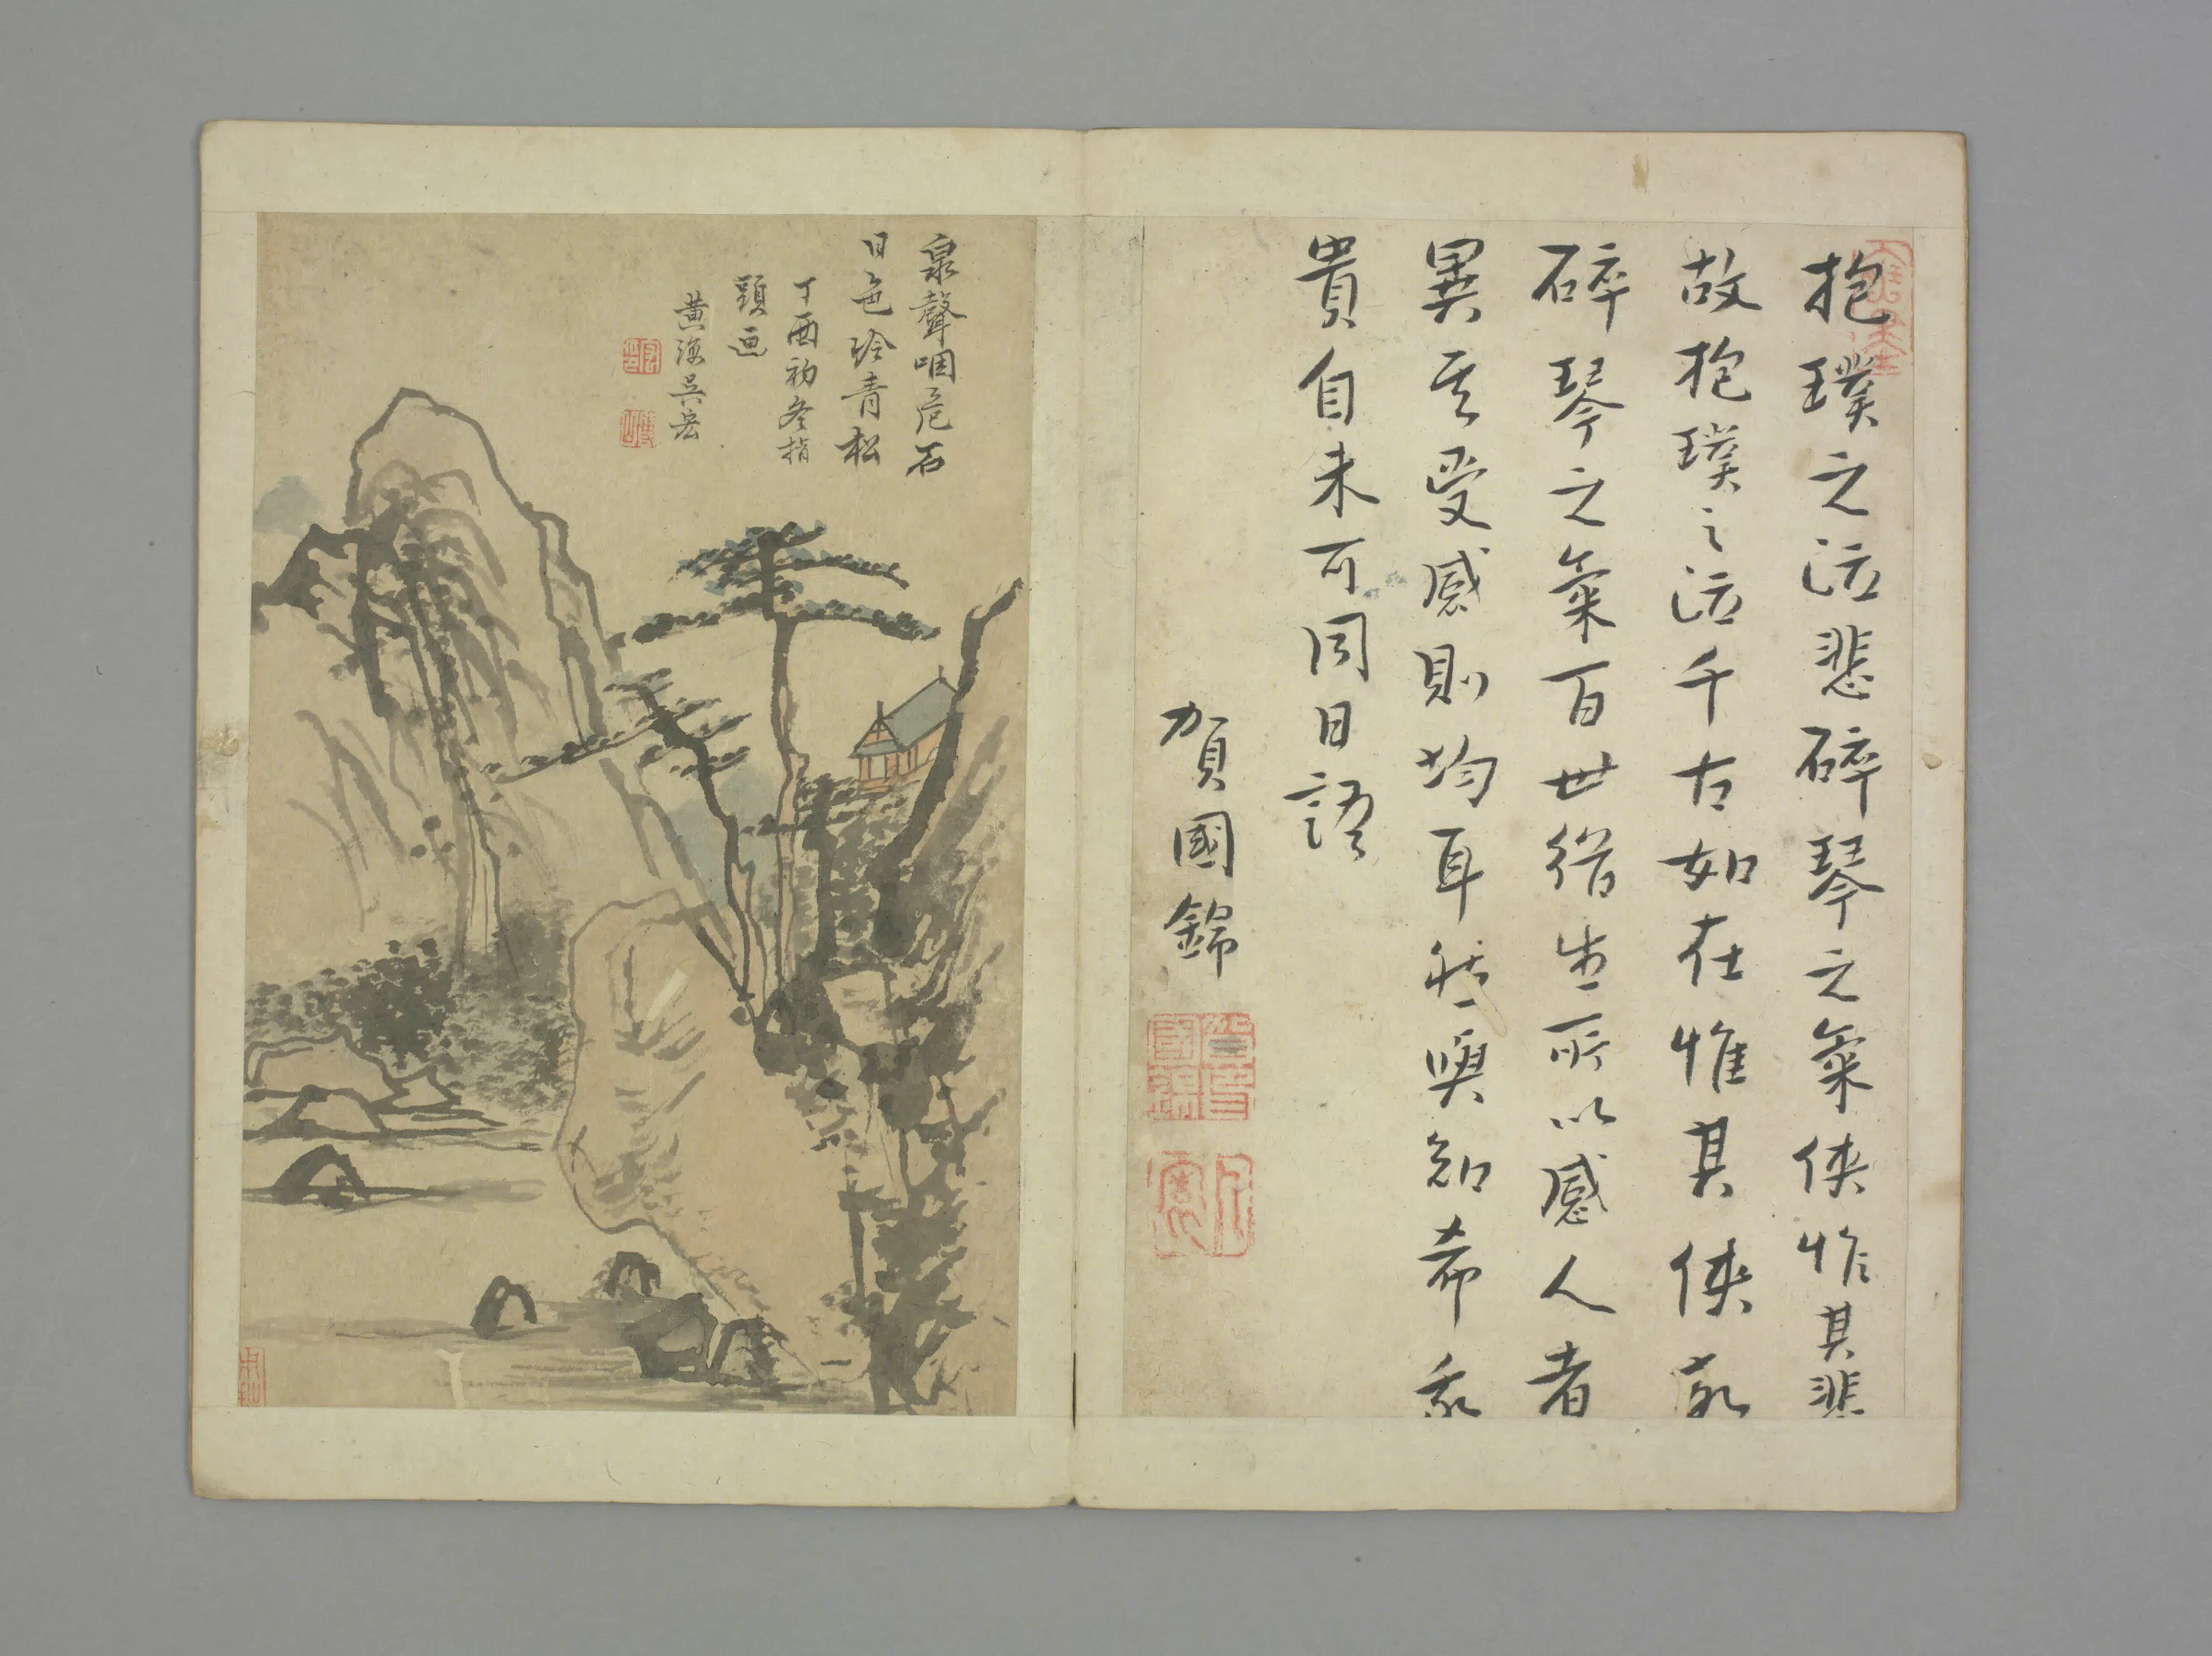 抱璞之泣悲碎琴之氣俠惟其悲
故抱璞之泣千古如在惟其俠故
碎琴之氣百世猶生所以感人者
異其受感則均耳然與知希我
貴自未可同日語
賀國錦
泉聲咽危石
日色冷青松
丁酉初冬指
頭画
黄海吳宏